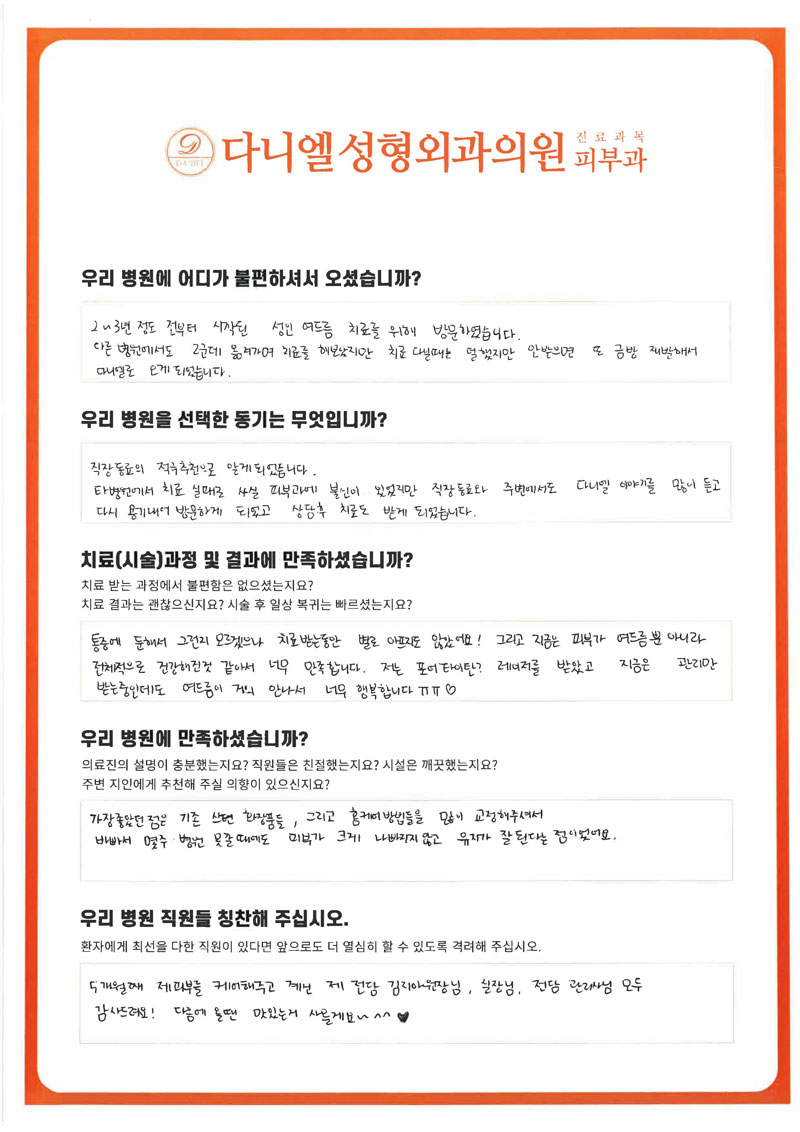 DANIEL
다니엘성형외과의원 진료과목 피부과
우리 병원에 어디가 불편하셔서 오셨습니까?
2~3년 정도 전부터 시작된 성인 여드름 치료를 위해 방문하였습니다.
다른 병원에서도 2군데 옮겨가며 치료를 해보았지만 치료 다닐때는 덜했지만 안받으면 또 금방 재발해서
다니엘로 오게되었습니다.
우리 병원을 선택한 동기는 무엇입니까?
직장동료의 적극추천으로 알게되었습니다.
타병원에서 치료 실패로 사실 피부과에 불신이 있었지만 직장동료와 주변에서도 다니엘 이야기를 많이 듣고
다시 용기내어 방문하게 되었고 상담후 치료도 받게 되었습니다.
치료(시술)과정 및 결과에 만족하셨습니까?
치료 받는 과정에서 불편함은 없으셨는지요?
치료 결과는 괜찮으신지요? 시술 후 일상 복귀는 빠르셨는지요?
통증에 둔해서 그런지 모르겠으나 치료받는동안 별로 아프지도 않았어요! 그리고 지금은 피부가 여드름뿐 아니라
전체적으로 건강해진것 같아서 너무 만족합니다. 저는 포어타이탄? 레이저를 받았고 지금은 관리만
받는중인데도 여드름이 거의 안나서 너무 행복합니다 ㅠㅠ ♡
우리 병원에 만족하셨습니까?
의료진의 설명이 충분했는지요? 직원들은 친절했는지요? 시설은 깨끗했는지요?
주변 지인에게 추천해 주실 의향이 있으신지요?
가장좋았던점은 기존 쓰던 화장품들, 그리고 홈케어방법들을 많이 교정해주셔서
바빠서 몇주 병원 못갈때에도 피부가 크게 나빠지지않고 유지가 잘된다는 점이었어요.
우리 병원 직원들 칭찬해 주십시오.
환자에게 최선을 다한 직원이 있다면 앞으로도 더 열심히 할 수 있도록 격려해 주십시오.
5개월째 제피부를 케어해주고 계신 제 전담 김지아원장님, 실장님, 전담 관리사님 모두
감사드려요! 다음에 올땐 맛있는거 사올게요~ ^^ ♥